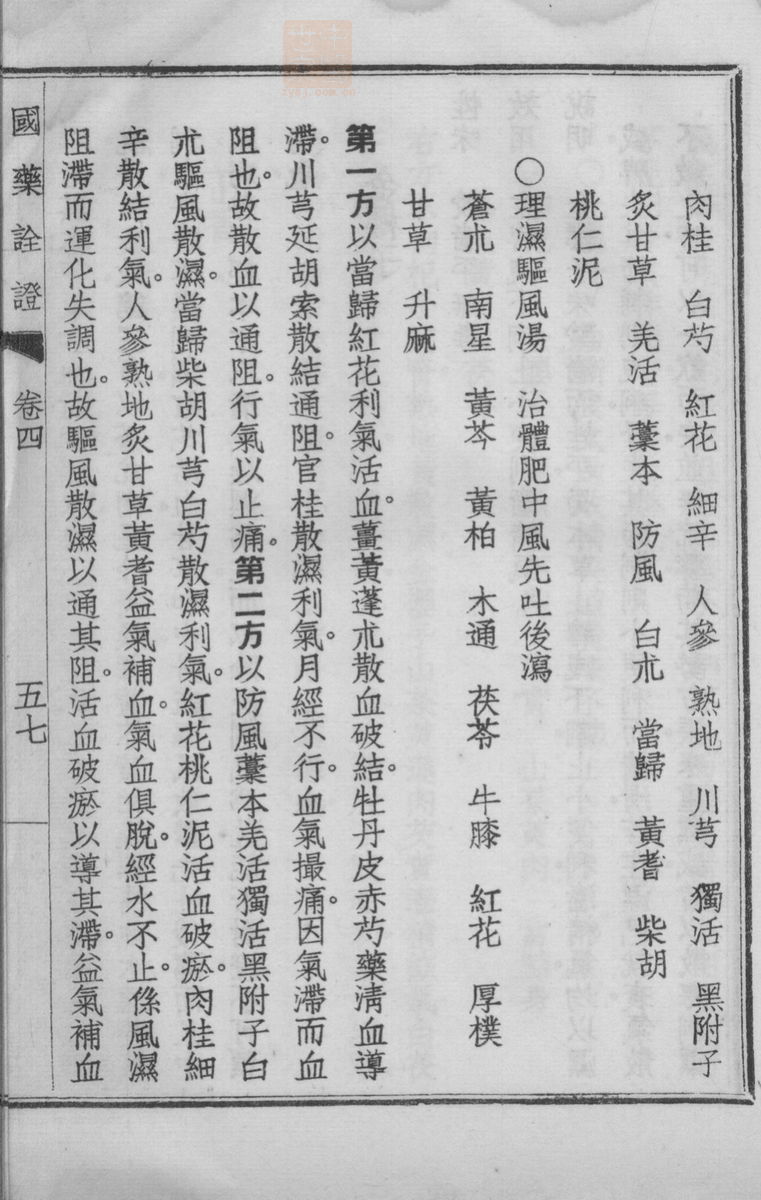 肉桂 白芍 紅花 細辛 人參 熟地 川芎 獨活 黑附子
炙甘草 羌活 藁本 防風 白朮 當歸 黃耆 柴胡
桃仁泥
〇理濕驅風湯 治體肥中風先吐後瀉
蒼朮 南星 黃芩 黃柏 木通 茯苓 牛膝 紅花 厚樸
甘草 升麻
第一方以當歸紅花利氣活血。薑黃蓬朮散血破結。牡丹皮赤芍藥淸血導
滯。川芎延胡索散結通阻。官桂散濕利氣。月經不行。血氣撮痛。因氣滯而血
阻也。故散血以通阻。行氣以止痛。第二方以防風藁本羌活獨活黑附子白
朮驅風散濕。當歸柴胡川芎白芍散濕利氣。紅花桃仁泥活血破瘀。肉桂細
辛散結利氣。人參熟地炙甘草黃耆益氣補血。氣血俱脫。經水不止。係風濕
阻滯而運化失調也。故驅風散濕以通其阻。活血破瘀以導其滯。益氣補血
國藥詮證 卷四 五七